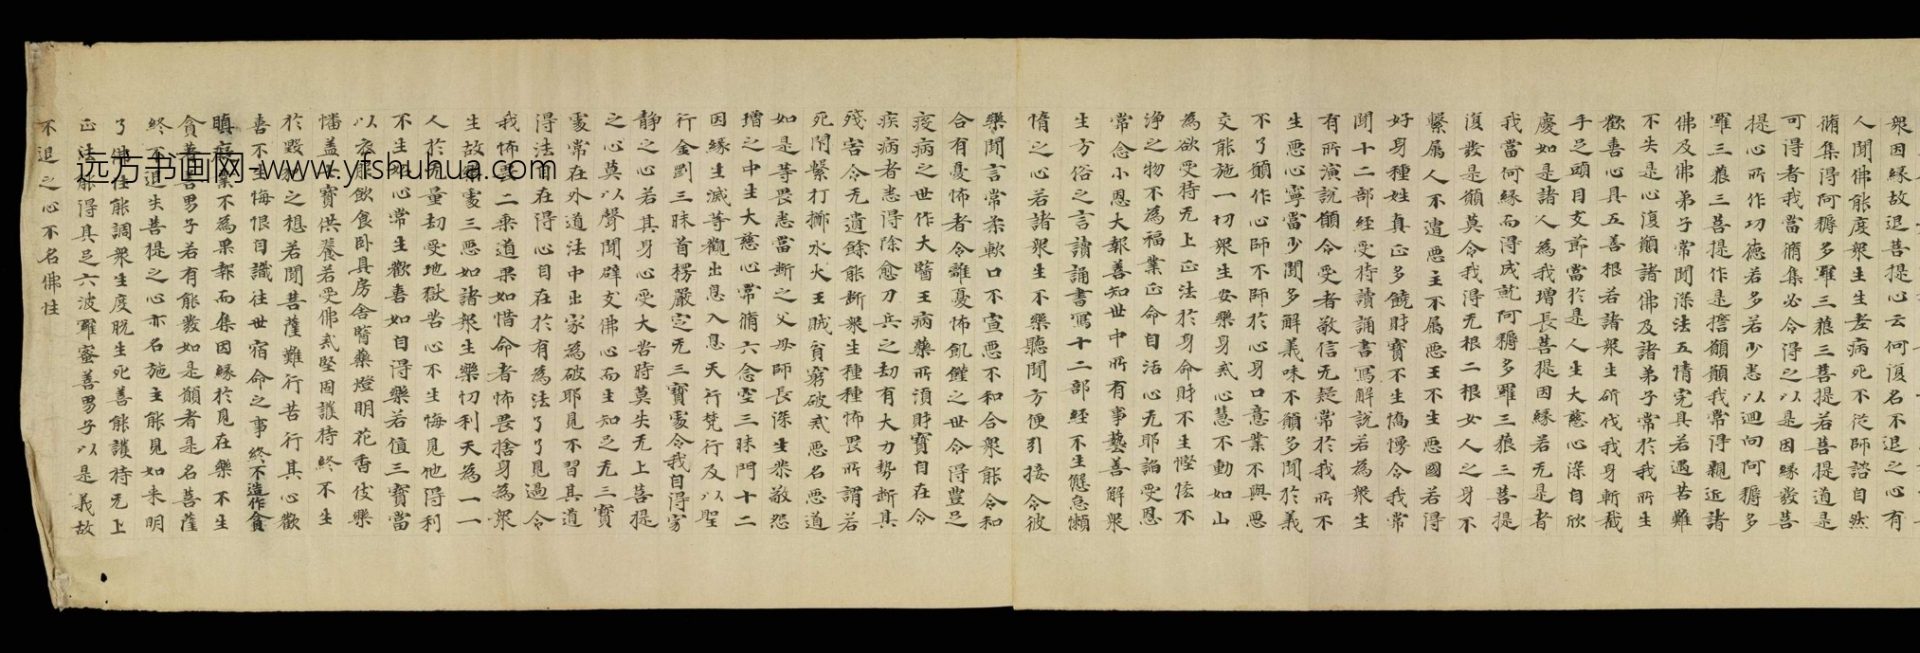 衆因縁故退菩提心云何復名不退之心有
人聞佛能度衆生生老病死不從師諮自然
脩集得阿耨多羅三藐三菩提若菩提道是
可得者我當脩集必令得之以是因緣發菩
提心所作功德若多若少悉以迴向阿耨多
羅三藐三菩提作是誓願願我常得親近諸
佛及佛弟子常聞深法五情完具若遇苦難
不失是心復願諸佛及諸弟子常於我所生
歡喜心具五善根若諸衆生斫伐我身斬截
手足頭目支節當於是人生大慈心深自欣
慶如是諸人為我增長菩提因緣若无是者
我當何緣而得成就阿耨多羅三藐三菩提
復發是願莫令我得无根二根女人之身不
繫屬人不遭惡主不屬惡王不生惡國若得
好身種姓真正多饒財寶不生憍慢令我常
聞十二部經受持讀誦書寫解說若為衆生
有所演說願令受者敬信无疑常於我所不
生惡心寧當少聞多解義味不願多聞於義
不了願作心師不師於心身口意業不與惡
交能施一切衆生安樂身戒心慧不動如山
為欲受持无上正法於身命財不生慳悋不
淨之物不為福業正命自活心无耶諂受恩
常念小恩大報善知世中所有事藝善解衆
生方俗之言讀誦書寫十二部經不生懈怠懶
惰之心若諸衆生不樂聽聞方便引接令彼
樂聞言常柔軟口不宣惡不和合衆能令和
合有憂怖者令離憂怖飢饉之世令得豐足
疫病之世作大醫王病藥所湏財寶自在令
疾病者悉得除愈刀兵之劫有大力勢斷其
殘害令无遺餘能斷衆生種種怖畏所謂若
死閇繫打擲水火王賊貧窮破戒惡名惡道
如是等畏悉當斷之父母師長深生恭敬怨
憎之中生大慈心常脩六念空三昧門十二
因緣生滅等觀出息入息天行梵行及以聖
行金剛三昧首楞嚴定无三寶處令我自得寂
靜之心若其身心受大苦時莫失无上菩提
之心莫以聲聞辟支佛心而生知之无三寶
處常在外道法中出家為破耶見不習其道
得法自在得心自在於有為法了了見過令
我怖畏二乘道果如惜命者怖畏捨身為衆
生故樂處三惡如諸衆生樂忉利天為一一
人於无量劫受地獄苦心不生悔見他得利
不生妬心常生歡喜如自得樂若值三寶當
以衣服飲食卧具房舍醫藥燈明花香伎樂
幡盖七寶供養若受佛戒堅固護持終不生
於毀犯之想若聞菩薩難行苦行其心歡
喜不生悔恨自識往世宿命之事終不造作貪
瞋癡業不為果報而集因緣於見在樂不生
貪著善男子若有能發如是願者是名菩薩
終不退失菩提之心亦名施主能見如来明
了佛性能調衆生度脫生死善能護持无上
正法能得具足六波羅蜜善男子以是義故
不退之心不名佛性
远方书画网-www.yfshuhua.com